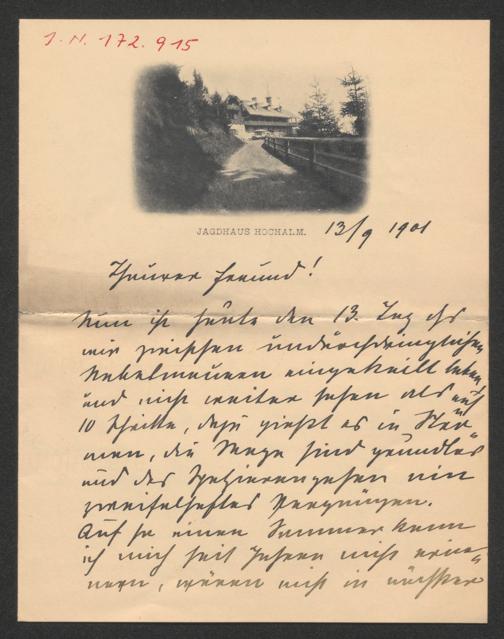 J.N. 172.915
JAGDHAUS HOCHALM.
13/9 1901
Theurer Freund!
Nun ist heute der 13. Tag daß
wir zwischen undurchdringlichen
Nebelmauern eingekeilt leben
und nicht weiter sehen als auf
10 Schritte, dazu gießt es in Strö-
men, die Wege sind grundlos
und das Spazierengehen ein
zweifelhaftes Vergnügen.
Auf so einen Sommer kann
ich mich seit Jahren nicht erin-
nern, wären nicht in nächster